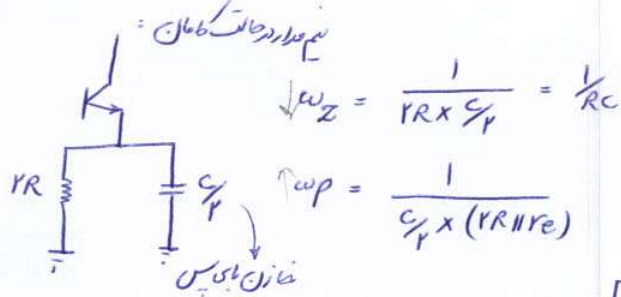 نیم مدار در حالت کامان :
↓ω_z = 1 / (۲R × C/۲) = 1/RC
۲R
C/۲
↑ω_p = 1 / (C/۲ × (۲R || r_e))
خازن بای پس